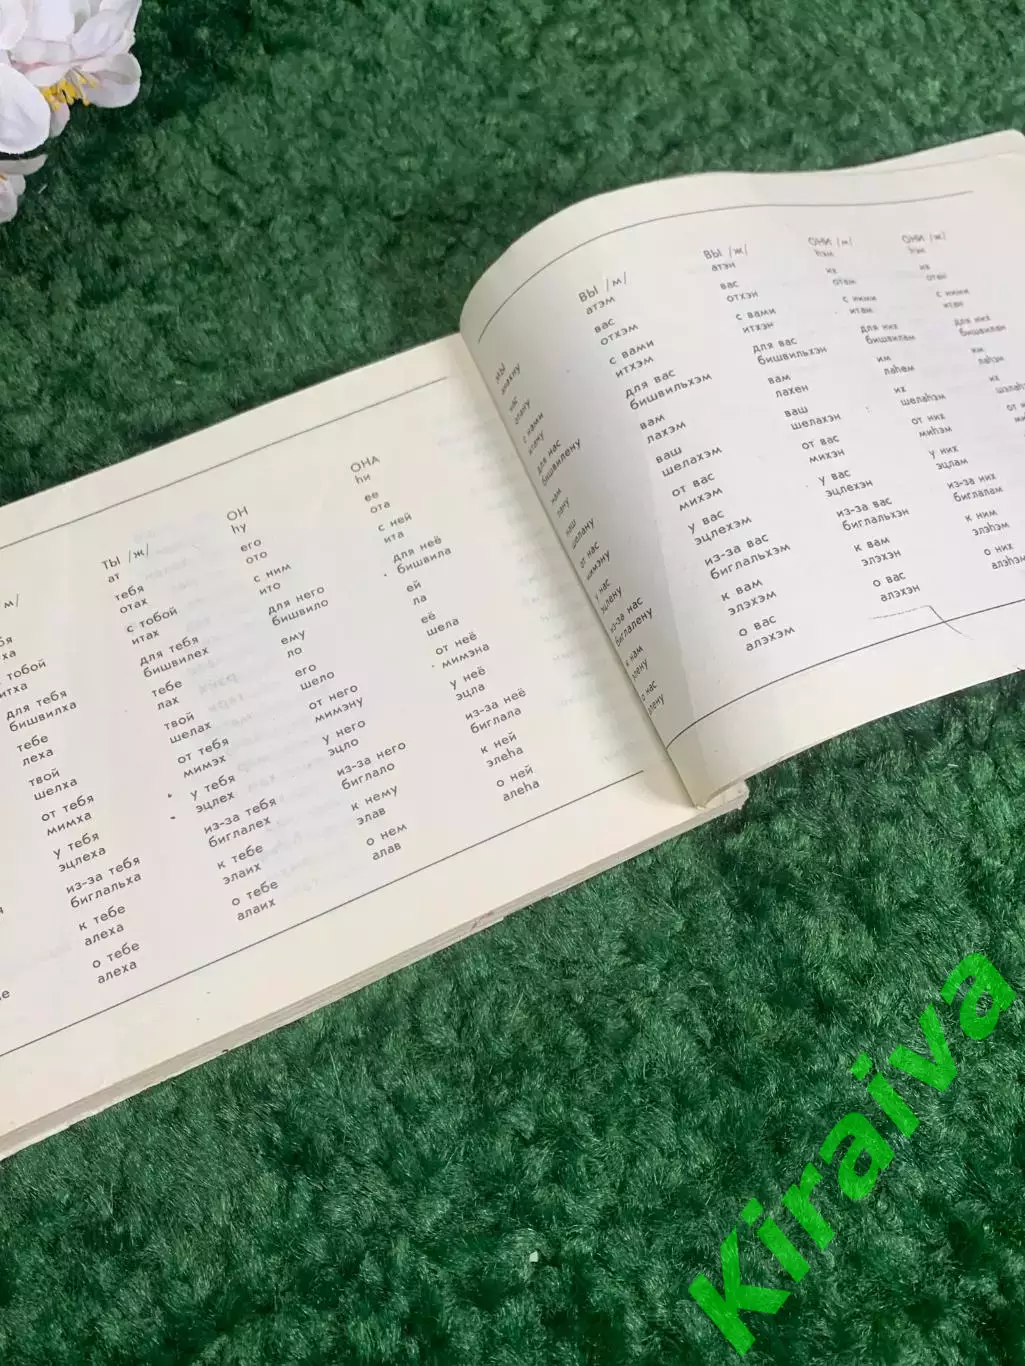 м/
ха
тобой
итха
для тебя
бишвилха
тебе
леха
твой
шелха
от тебя
мимха
у тебя
эцлеха
из-за тебя
биглальха
к тебе
алеха
о тебе
алеха
ТЫ /ж/
ат
тебя
отах
с тобой
итах
для тебя
бишвилех
тебе
лах
твой
шелах
от тебя
мимэх
у тебя
эцлех
из-за тебя
биглалех
к тебе
элаих
о тебе
алаих
ОН
hу
его
ото
с ним
ито
для него
бишвило
ему
ло
его
шело
от него
мимэну
у него
эцло
из-за него
биглало
к нему
элав
о нем
алав
ОНА
hи
ее
ота
с ней
ита
для неё
бишвила
ей
ла
её
шела
от неё
мимэна
у неё
эцла
из-за неё
биглала
к ней
элеhа
о ней
алеhа
МЫ
анахну
нас
отану
с нами
итану
для нас
бишвилену
нам
лану
наш
шелану
от нас
мимэну
у нас
эцлену
из-за нас
биглалену
к нам
элену
о нас
алену
ВЫ /м/
атэм
вас
отхэм
с вами
итхэм
для вас
бишвильхэм
вам
лахэм
ваш
шелахэм
от вас
михэм
у вас
эцлехэм
из-за вас
биглальхэм
к вам
элэхэм
о вас
алэхэм
ВЫ /ж/
атэн
вас
отхэн
с вами
итхэн
для вас
бишвильхэн
вам
лахен
ваш
шелахэн
от вас
михэн
у вас
эцлехэн
из-за вас
биглальхэн
к вам
элэхэн
о вас
алэхэн
ОНИ /м/
hэм
их
отам
с ними
итам
для них
бишвилам
им
лаhем
их
шелаhэм
от них
миhэм
у них
эцлам
из-за них
биглалам
к ним
элэhэм
о них
алэhэм
ОНИ /ж/
hэн
их
отан
с ними
итан
для них
бишвилан
им
лаhэн
их
от
Kiraiva